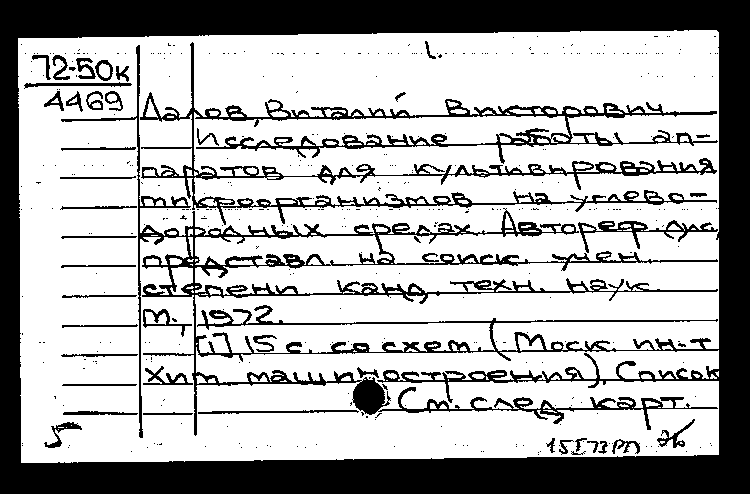 1.
72-50к
4469
Лалов, Виталий Викторович.
Исследование работы ап-
паратов для культивирования
микроорганизмов на углево-
дородных средах. Автореф. дис,
представл. на соиск. учен.
степени канд. техн. наук.
М., 1972.
[1], 15 с. со схем. (Моск. ин-т
хим. машиностроения). Список
См. след. карт.
5
15 I 73 РП